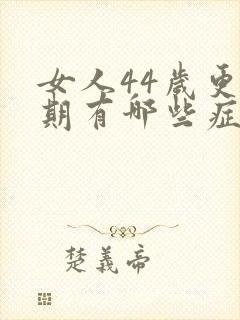 女人44岁更
期有哪些症
楚義帝